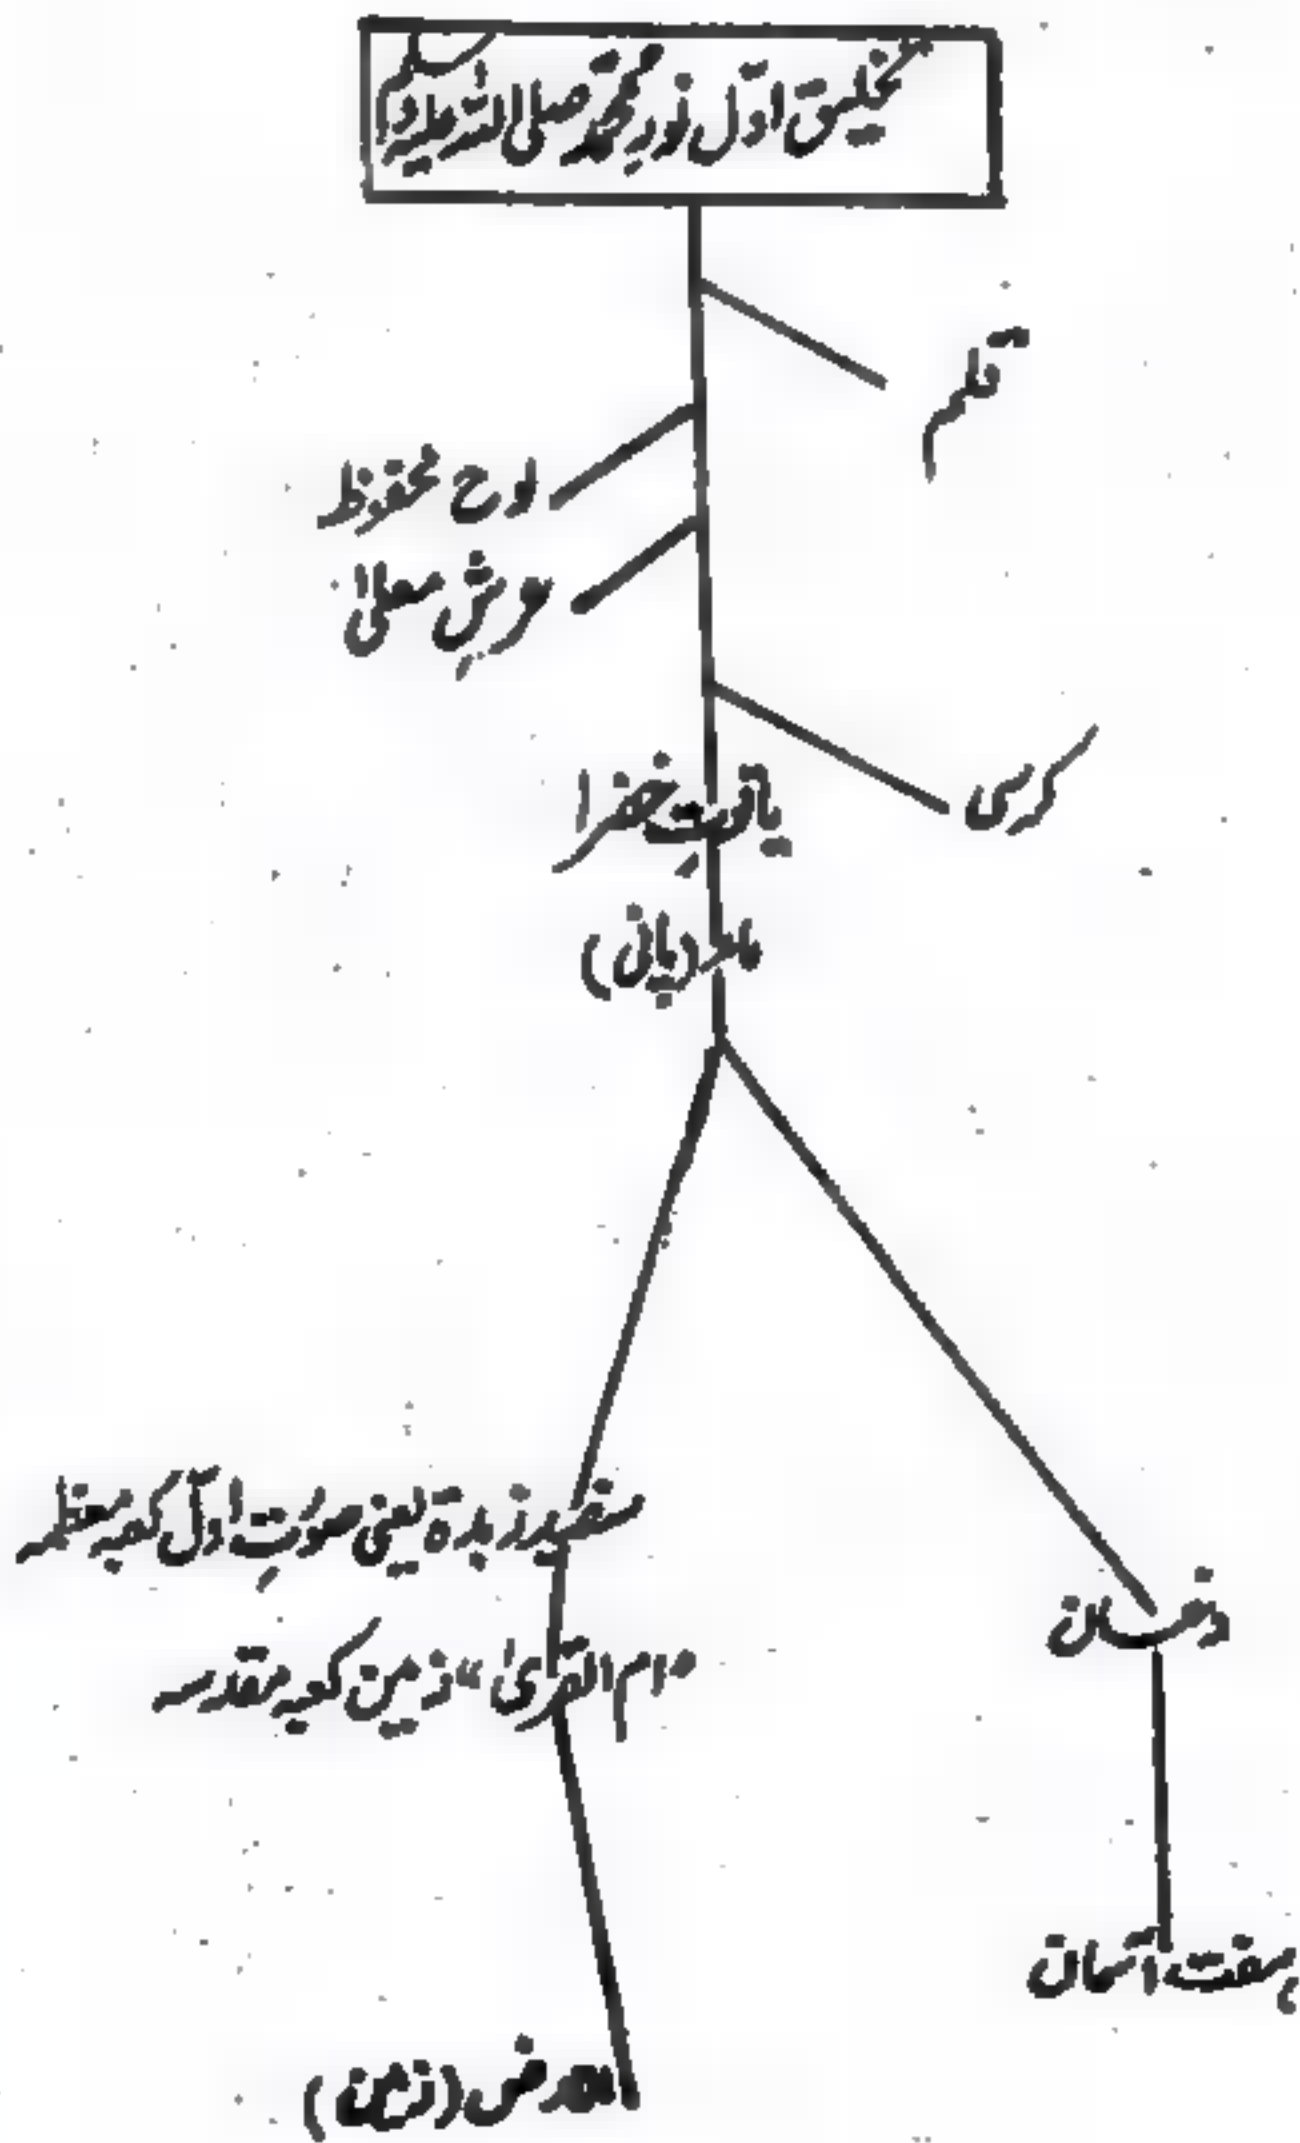 تخلیق اوّل نورِ محمّد صلی اللہ علیہ وآلہ وسلم
قلم
لوح محفوظ
عرشِ معلیٰ
کرسی
یاقوتِ خضرا
ماء (پانی)
سفید زبدۃ یعنی صورتِ اوّل کعبہ معظمہ
"ام القریٰ" زمین کعبہ مقدسہ
دخان
ہفت آسمان
الارض (زمین)